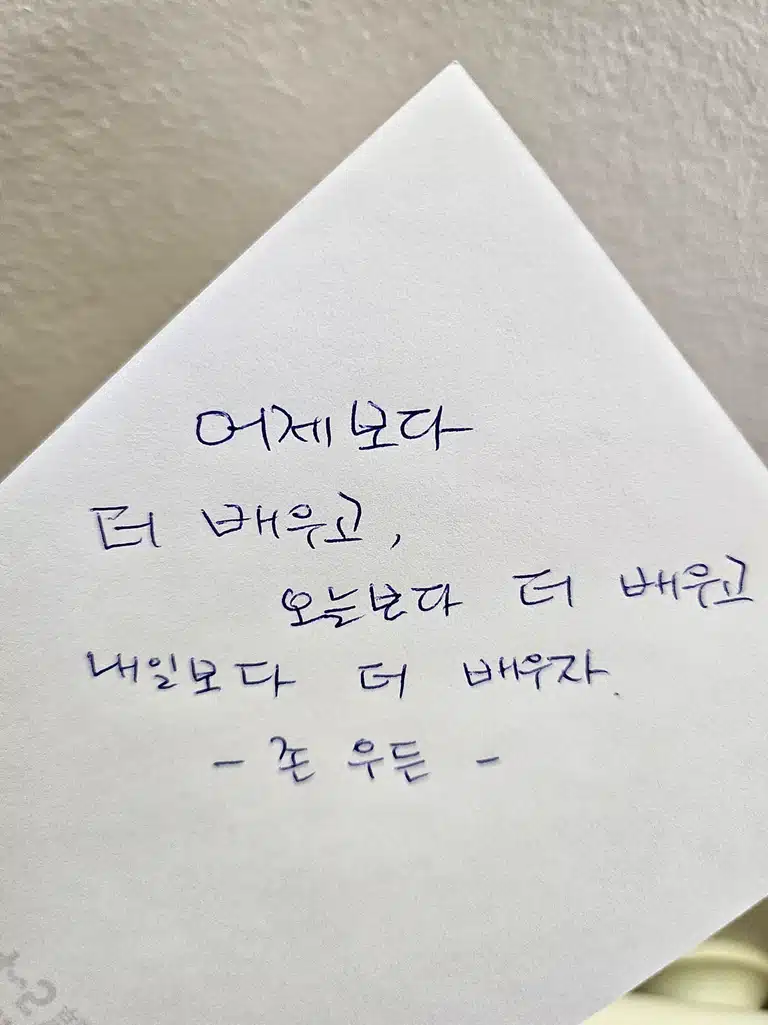 어제보다
더 배우고,
오늘보다 더 배우고
내일보다 더 배우자.
- 존 우든 -